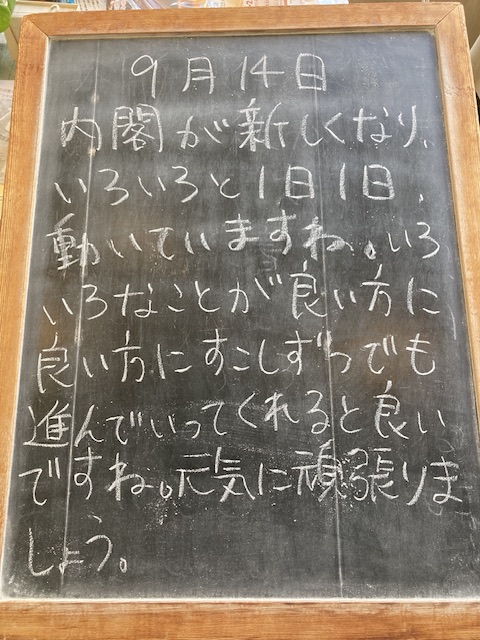 9月14日
内閣が新しくなり、
いろいろと1日1日、
動いていますね。いろ
いろなことが良い方に、
良い方にすこしずつでも
進んでいってくれると良い
ですね。元気に頑張りま
しょう。